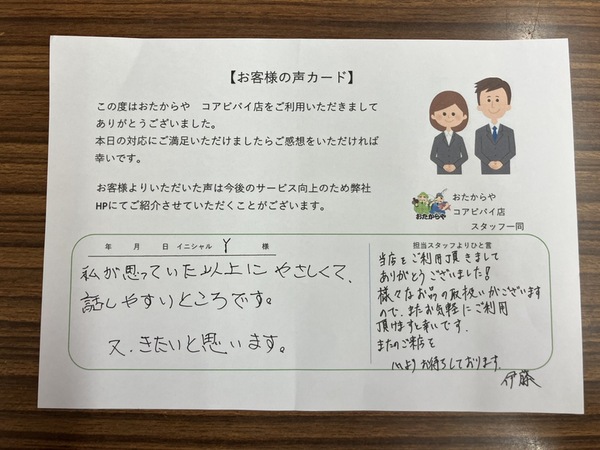 【お客様の声カード】
この度はおたからや　コアピバイ店をご利用いただきまして
ありがとうございました。
本日の対応にご満足いただけましたらご感想をいただければ
幸いです。
お客様よりいただいた声は今後のサービス向上のため弊社
HPにてご紹介させていただくことがございます。
おたからや
おたからや
コアピバイ店
スタッフ一同
年　月　日 イニシャル　Y　様
私が思っていた以上にやさしくて、
話しやすいところです。
又、きたいと思います。
担当スタッフよりひと言
当店をご利用頂きまして
ありがとうございました!
様々なお品の取扱いがございます
ので、またお気軽にご利用
頂けますと幸いです。
またのご来店を
心よりお待ちしております。
伊藤